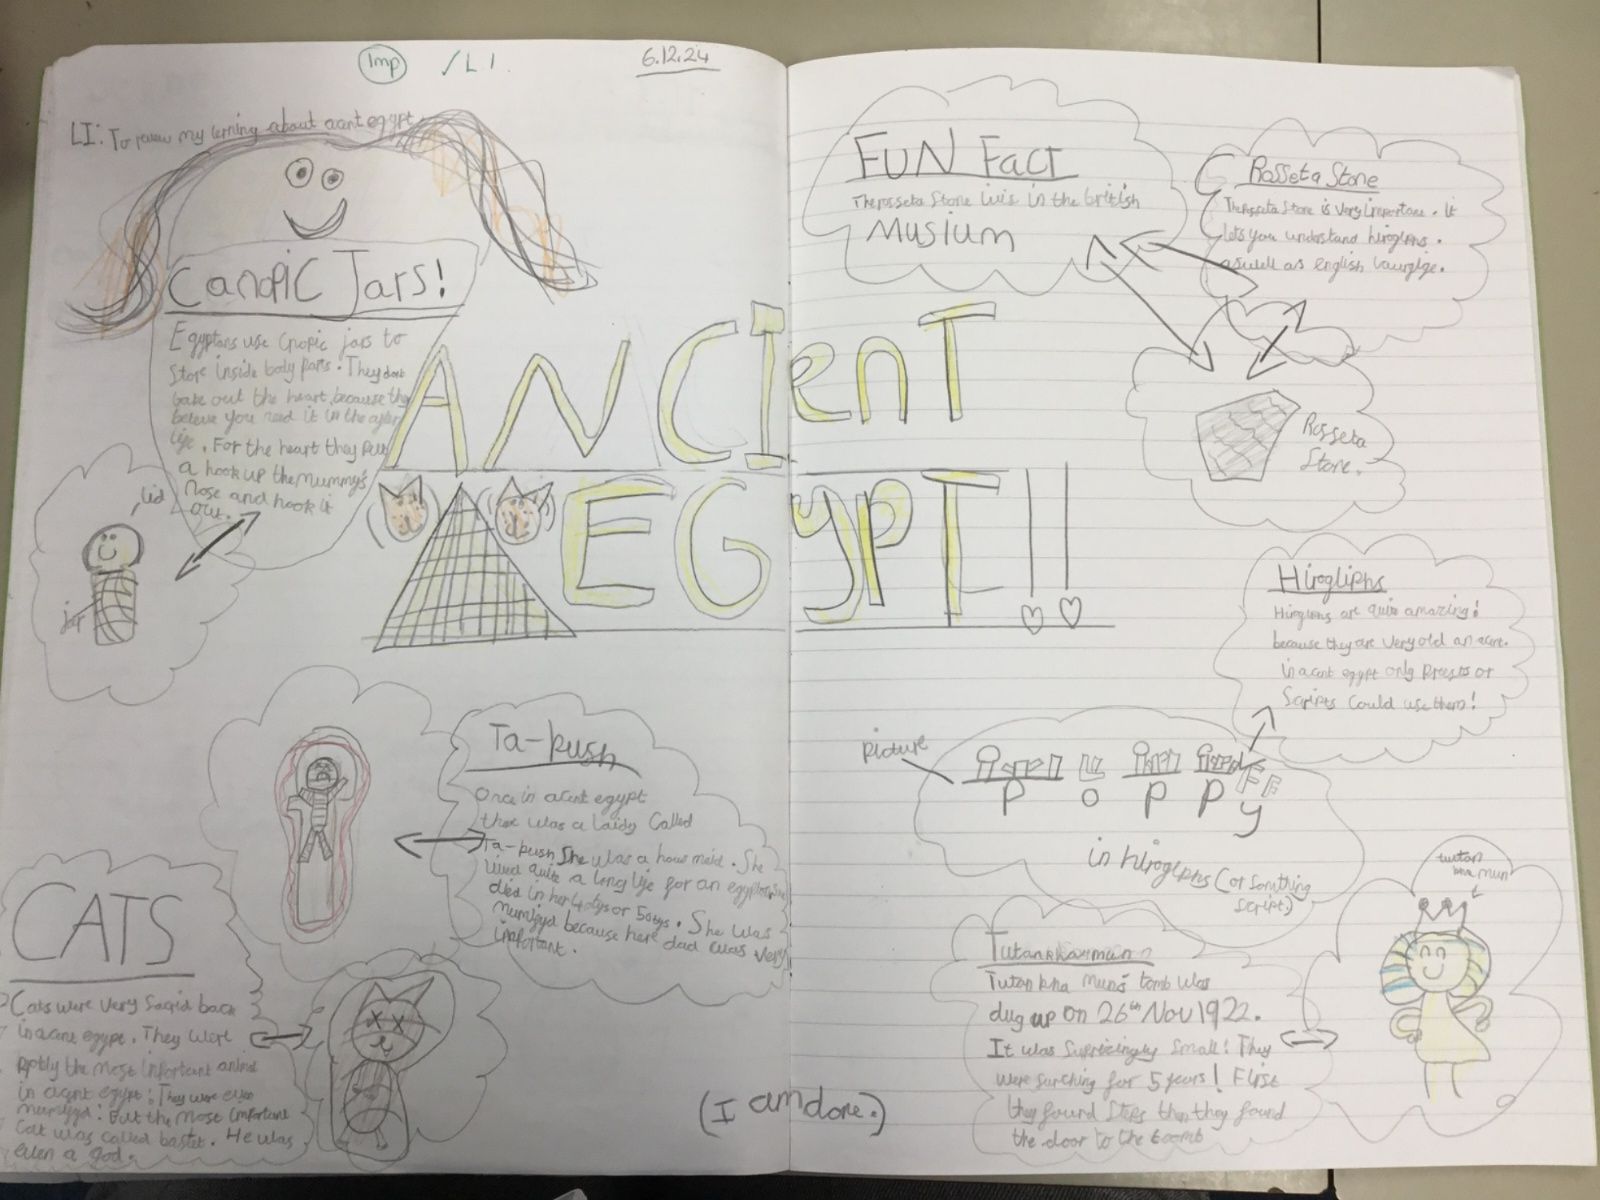 Imp
/LI.
6.12.24
LI: To revew my lerning about acent egypt
Canopic Jars!
Egyptans use Cnopic jars to
Store inside body parts. They dont
take out the heart because they
beleve you need it in the after
life. For the heart they put
a hook up the mummy's
Nose and hook it
out.
lid
jar
ANCIenT
EGypT!!
FUN Fact
The rosseta Stone livis in the british
Musium
Rosseta Stone
The rosseta Stone is very importane. it
lets you understand hiroglphs.
aswell as english laungige.
Rosseta
Stone.
Hirogliphs
Hiroglphs are quite amazing!
because they are very old an acent.
in acent egypt only preasts or
Scripts could use them!
picture
P o P P y
in hiroglphs (or somthing
script.)
Ta-push
Once in acent egypt
ther was a laidy called
Ta-push She was a hous maid. She
lived quite a long life for an egyptan she
died in her 40tys or 50tys. She was
mumifyd because here dad was very
important.
CATS
Cats were very sacrid back
in acent egypt. They were
pobly the most important animal
in acent egypt! They were even
mumifyd! But the most important
Cat was called bastet. He was
even a god.
tutan
kha mun
Tutankhamun
Tutan kha muns tomb was
dug up on 26th Nov 1922.
It was suprizingly small! They
were surching for 5 years! First
they found steps then they found
the door to the toomb
(I am done.)